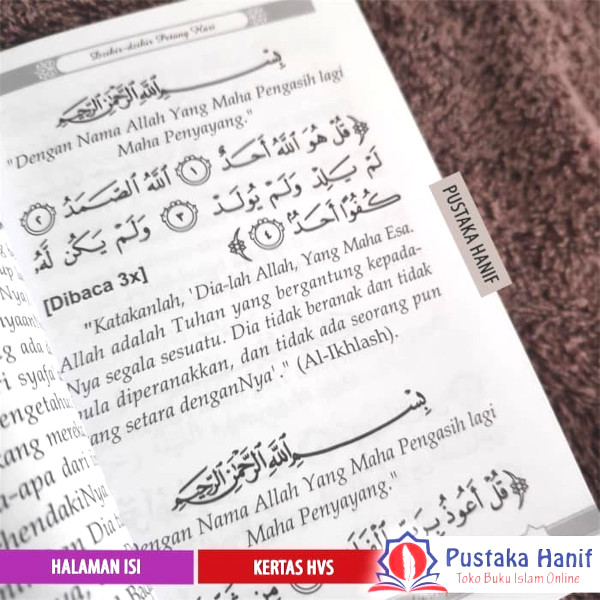 Dzikir-dzikir Petang Hari
بِسْمِ اللَّهِ الرَّحْمَٰنِ الرَّحِيمِ
"Dengan Nama Allah Yang Maha Pengasih lagi
Maha Penyayang."
﴿ قُلْ هُوَ اللَّهُ أَحَدٌ ١ اللَّهُ الصَّمَدُ ٢
لَمْ يَلِدْ وَلَمْ يُولَدْ ٣ وَلَمْ يَكُن لَّهُ
كُفُوًا أَحَدٌ ٤ ﴾
[Dibaca 3x]
"Katakanlah, 'Dia-lah Allah, Yang Maha Esa.
Allah adalah Tuhan yang bergantung kepada-
Nya segala sesuatu. Dia tidak beranak dan tidak
pula diperanakkan, dan tidak ada seorang pun
yang setara denganNya'." (Al-Ikhlash).
بِسْمِ اللَّهِ الرَّحْمَٰنِ الرَّحِيمِ
"Dengan Nama Allah Yang Maha Pengasih lagi
Maha Penyayang."
﴿ قُلْ أَعُوذُ بِرَبِّ
PUSTAKA HANIF
HALAMAN ISI
KERTAS HVS
Pustaka Hanif
Toko Buku Islam Online